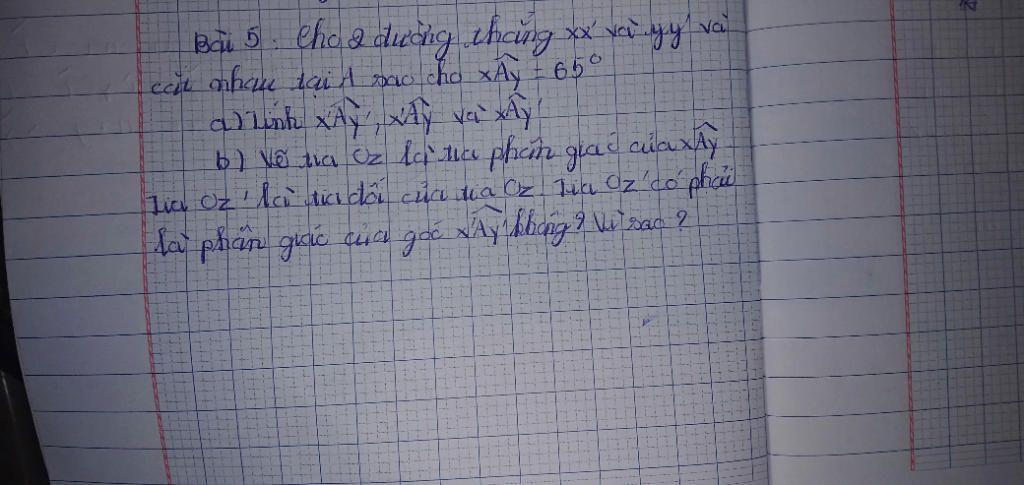 Bài 5. Cho 2 đường thẳng xx' và yy' và
cắt nhau tại A sao cho xÂy = 65°
a) Tính xÂy', x'Ây và x'Ây'
b) Vẽ tia Oz là tia phân giác của xÂy
Tia Oz' là tia đối của tia Oz. Tia Oz' có phải
là phân giác của góc x'Ây' không? Vì sao?